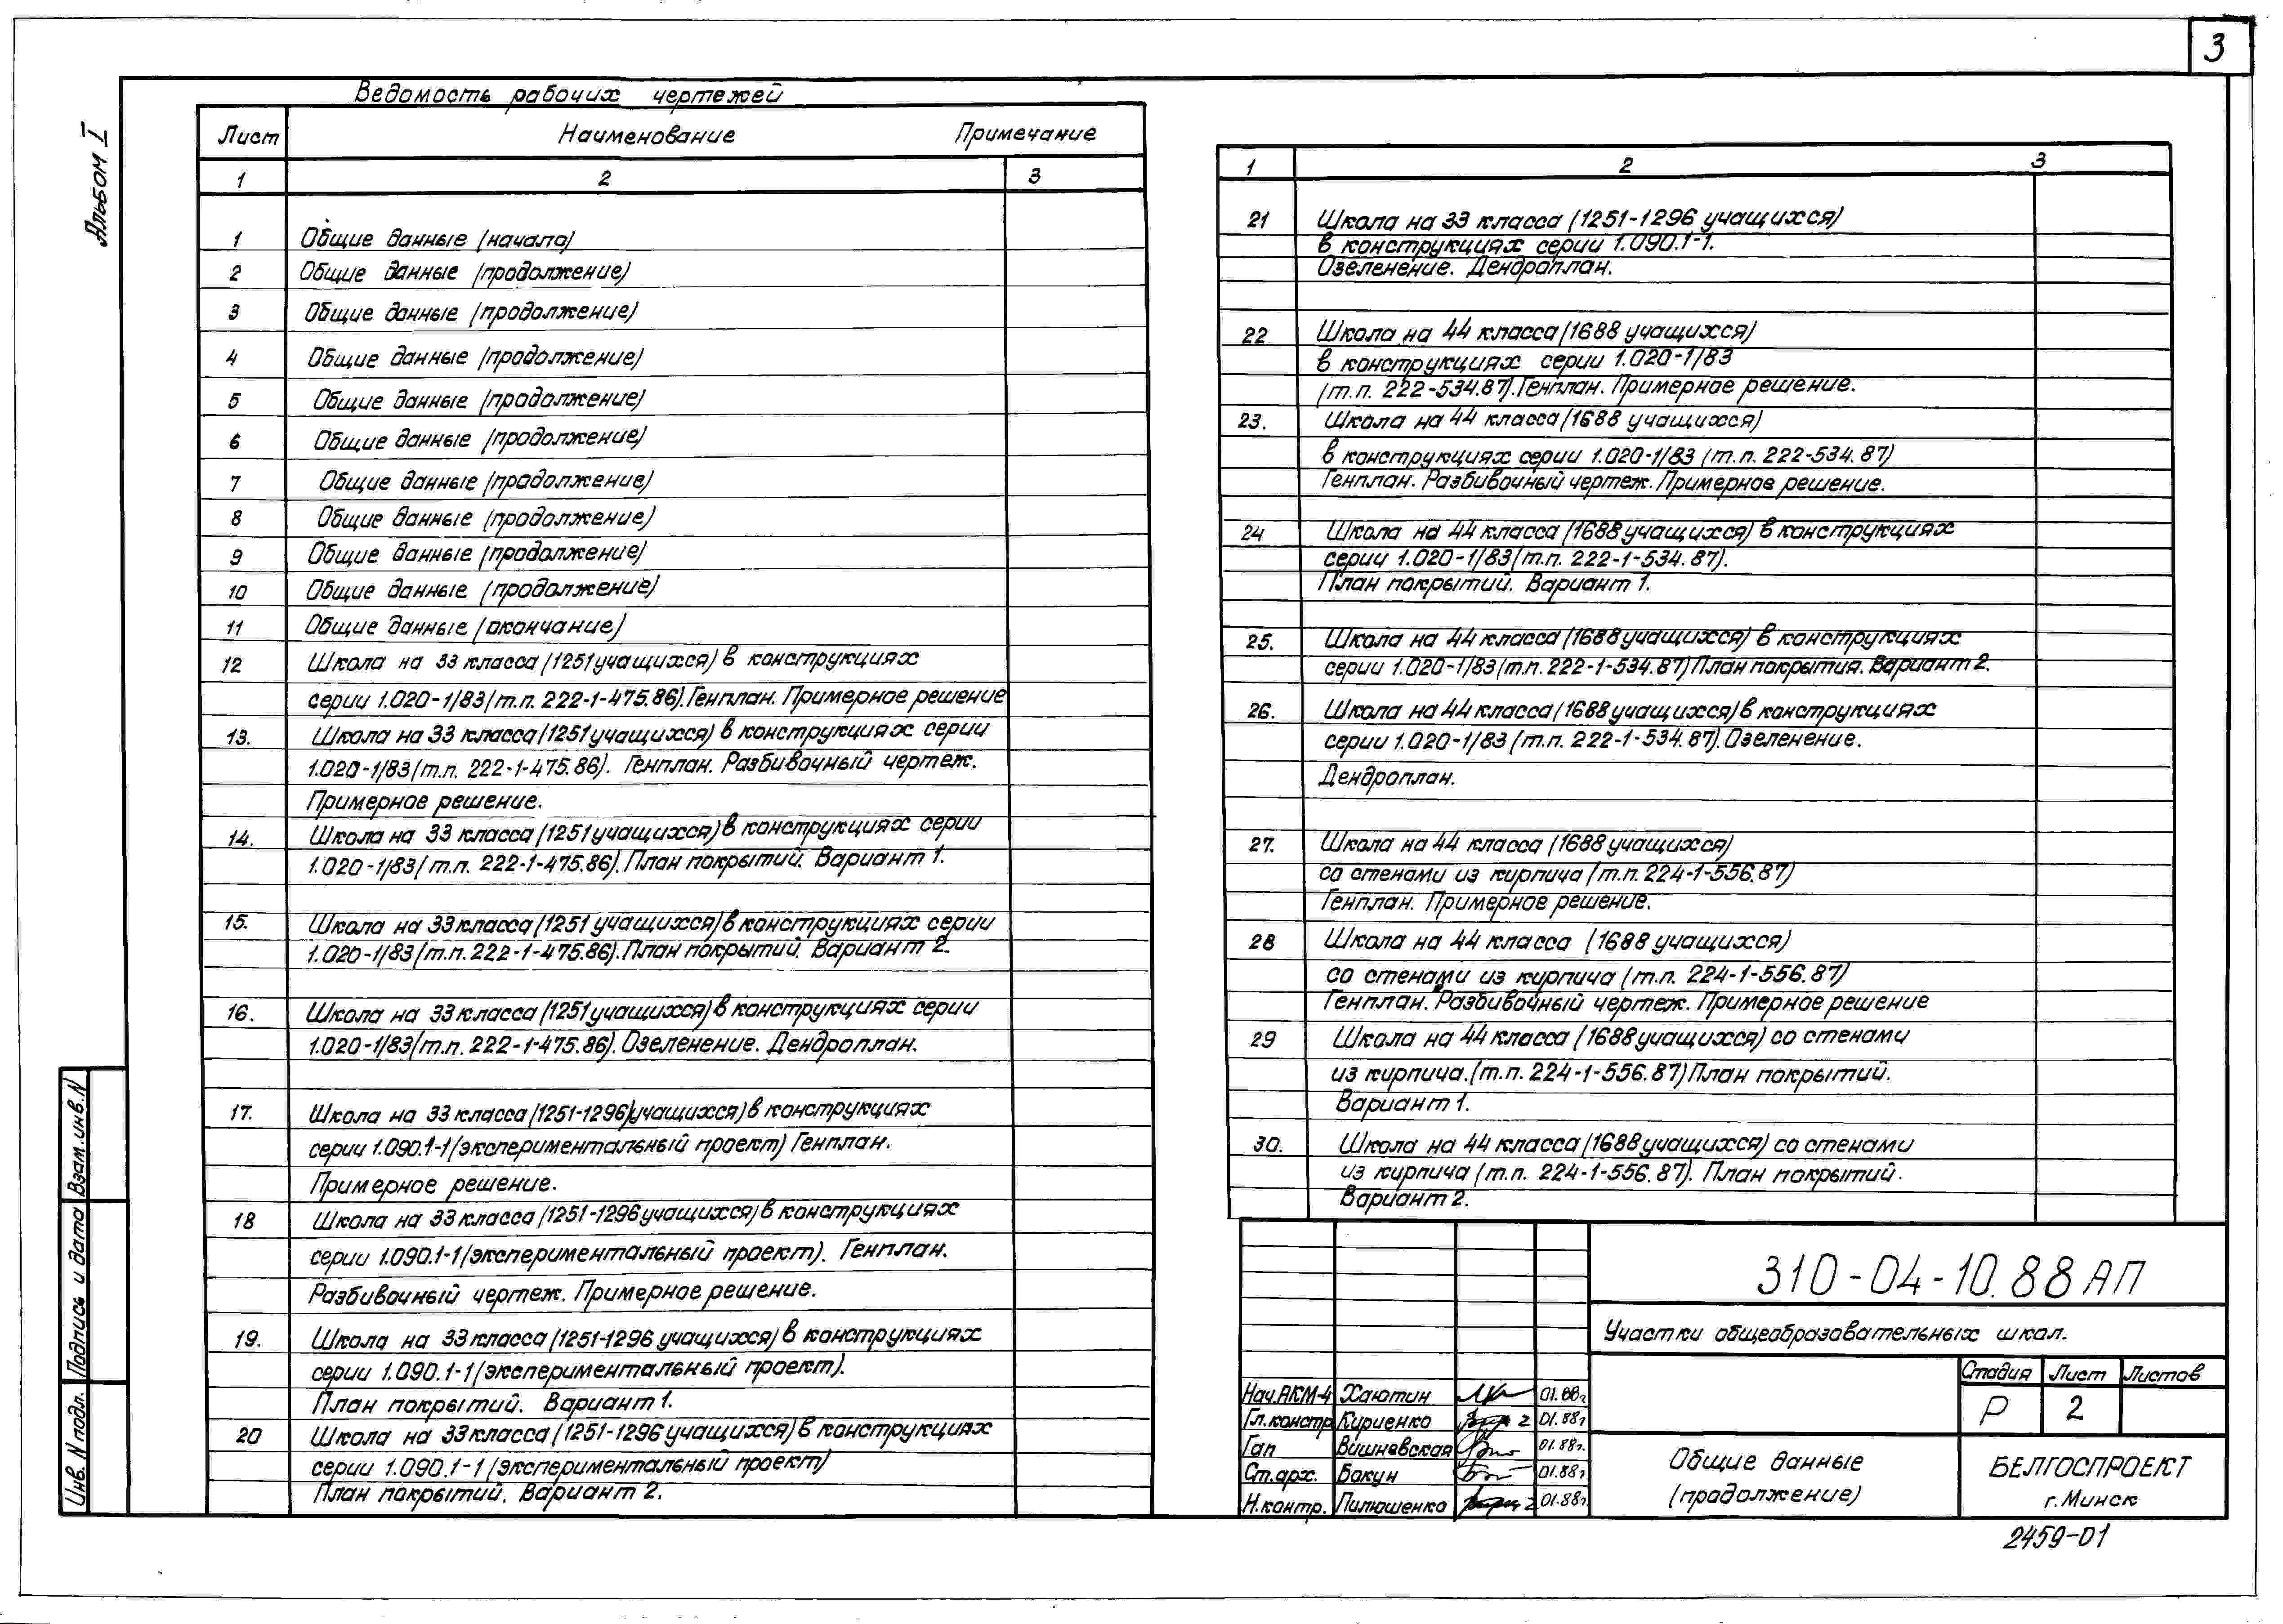 3
Альбом I
Ведомость рабочих чертежей
Лист Наименование Примечание
1 2 3
1 Общие данные (начало)
2 Общие данные (продолжение)
3 Общие данные (продолжение)
4 Общие данные (продолжение)
5 Общие данные (продолжение)
6 Общие данные (продолжение)
7 Общие данные (продолжение)
8 Общие данные (продолжение)
9 Общие данные (продолжение)
10 Общие данные (продолжение)
11 Общие данные (окончание)
12 Школа на 33 класса (1251 учащихся) в конструкциях
серии 1.020-1/83 (т.п. 222-1-475.86). Генплан. Примерное решение
13. Школа на 33 класса (1251 учащихся) в конструкциях серии
1.020-1/83 (т.п. 222-1-475.86). Генплан. Разбивочный чертеж.
Примерное решение.
14. Школа на 33 класса (1251 учащихся) в конструкциях серии
1.020-1/83 (т.п. 222-1-475.86). План покрытий. Вариант 1.
15. Школа на 33 класса (1251 учащихся) в конструкциях серии
1.020-1/83 (т.п. 222-1-475.86). План покрытий. Вариант 2.
16. Школа на 33 класса (1251 учащихся) в конструкциях серии
1.020-1/83 (т.п. 222-1-475.86). Озеленение. Дендроплан.
17. Школа на 33 класса (1251-1296) учащихся) в конструкциях
серии 1.090.1-1 (экспериментальный проект) Генплан.
Примерное решение.
18 Школа на 33 класса (1251-1296 учащихся) в конструкциях
серии 1.090.1-1 (экспериментальный проект). Генплан.
Разбивочный чертеж. Примерное решение.
19. Школа на 33 класса (1251-1296 учащихся) в конструкциях
серии 1.090.1-1 (экспериментальный проект).
План покрытий. Вариант 1.
20 Школа на 33 класса (1251-1296 учащихся) в конструкциях
серии 1.090.1-1 (экспериментальный проект)
План покрытий. Вариант 2.
1 2 3
21 Школа на 33 класса (1251-1296 учащихся)
в конструкциях серии 1.090.1-1.
Озеленение. Дендроплан.
22 Школа на 44 класса (1688 учащихся)
в конструкциях серии 1.020-1/83
(т.п. 222-534.87). Генплан. Примерное решение.
23. Школа на 44 класса (1688 учащихся)
в конструкциях серии 1.020-1/83 (т.п. 222-534.87)
Генплан. Разбивочный чертеж. Примерное решение.
24 Школа на 44 класса (1688 учащихся) в конструкциях
серии 1.020-1/83 (т.п. 222-1-534.87).
План покрытий. Вариант 1.
25. Школа на 44 класса (1688 учащихся) в конструкциях
серии 1.020-1/83 (т.п. 222-1-534.87) План покрытия. Вариант 2.
26. Школа на 44 класса (1688 учащихся) в конструкциях
серии 1.020-1/83 (т.п. 222-1-534.87). Озеленение.
Дендроплан.
27. Школа на 44 класса (1688 учащихся)
со стенами из кирпича (т.п. 224-1-556.87)
Генплан. Примерное решение.
28 Школа на 44 класса (1688 учащихся)
со стенами из кирпича (т.п. 224-1-556.87)
Генплан. Разбивочный чертеж. Примерное решение
29 Школа на 44 класса (1688 учащихся) со стенами
из кирпича. (т.п. 224-1-556.87) План покрытий.
Вариант 1.
30. Школа на 44 класса (1688 учащихся) со стенами
из кирпича (т.п. 224-1-556.87). План покрытий.
Вариант 2.
310-04-10.88 АП
Участки общеобразовательных школ.
Стадия Лист Листов
Р 2
Нач.АКМ-4 Хаютин 01.88г
Гл.констр Кириенко 01.88г
Гап Вишневская 01.88г.
Ст.арх. Бакун 01.88г
Н.контр. Пилюшенко 01.88г.
Общие данные
(продолжение)
БЕЛГОСПРОЕКТ
г. Минск
2459-01
Взам.инв.N
Подпись и дата
Инв. N подл.